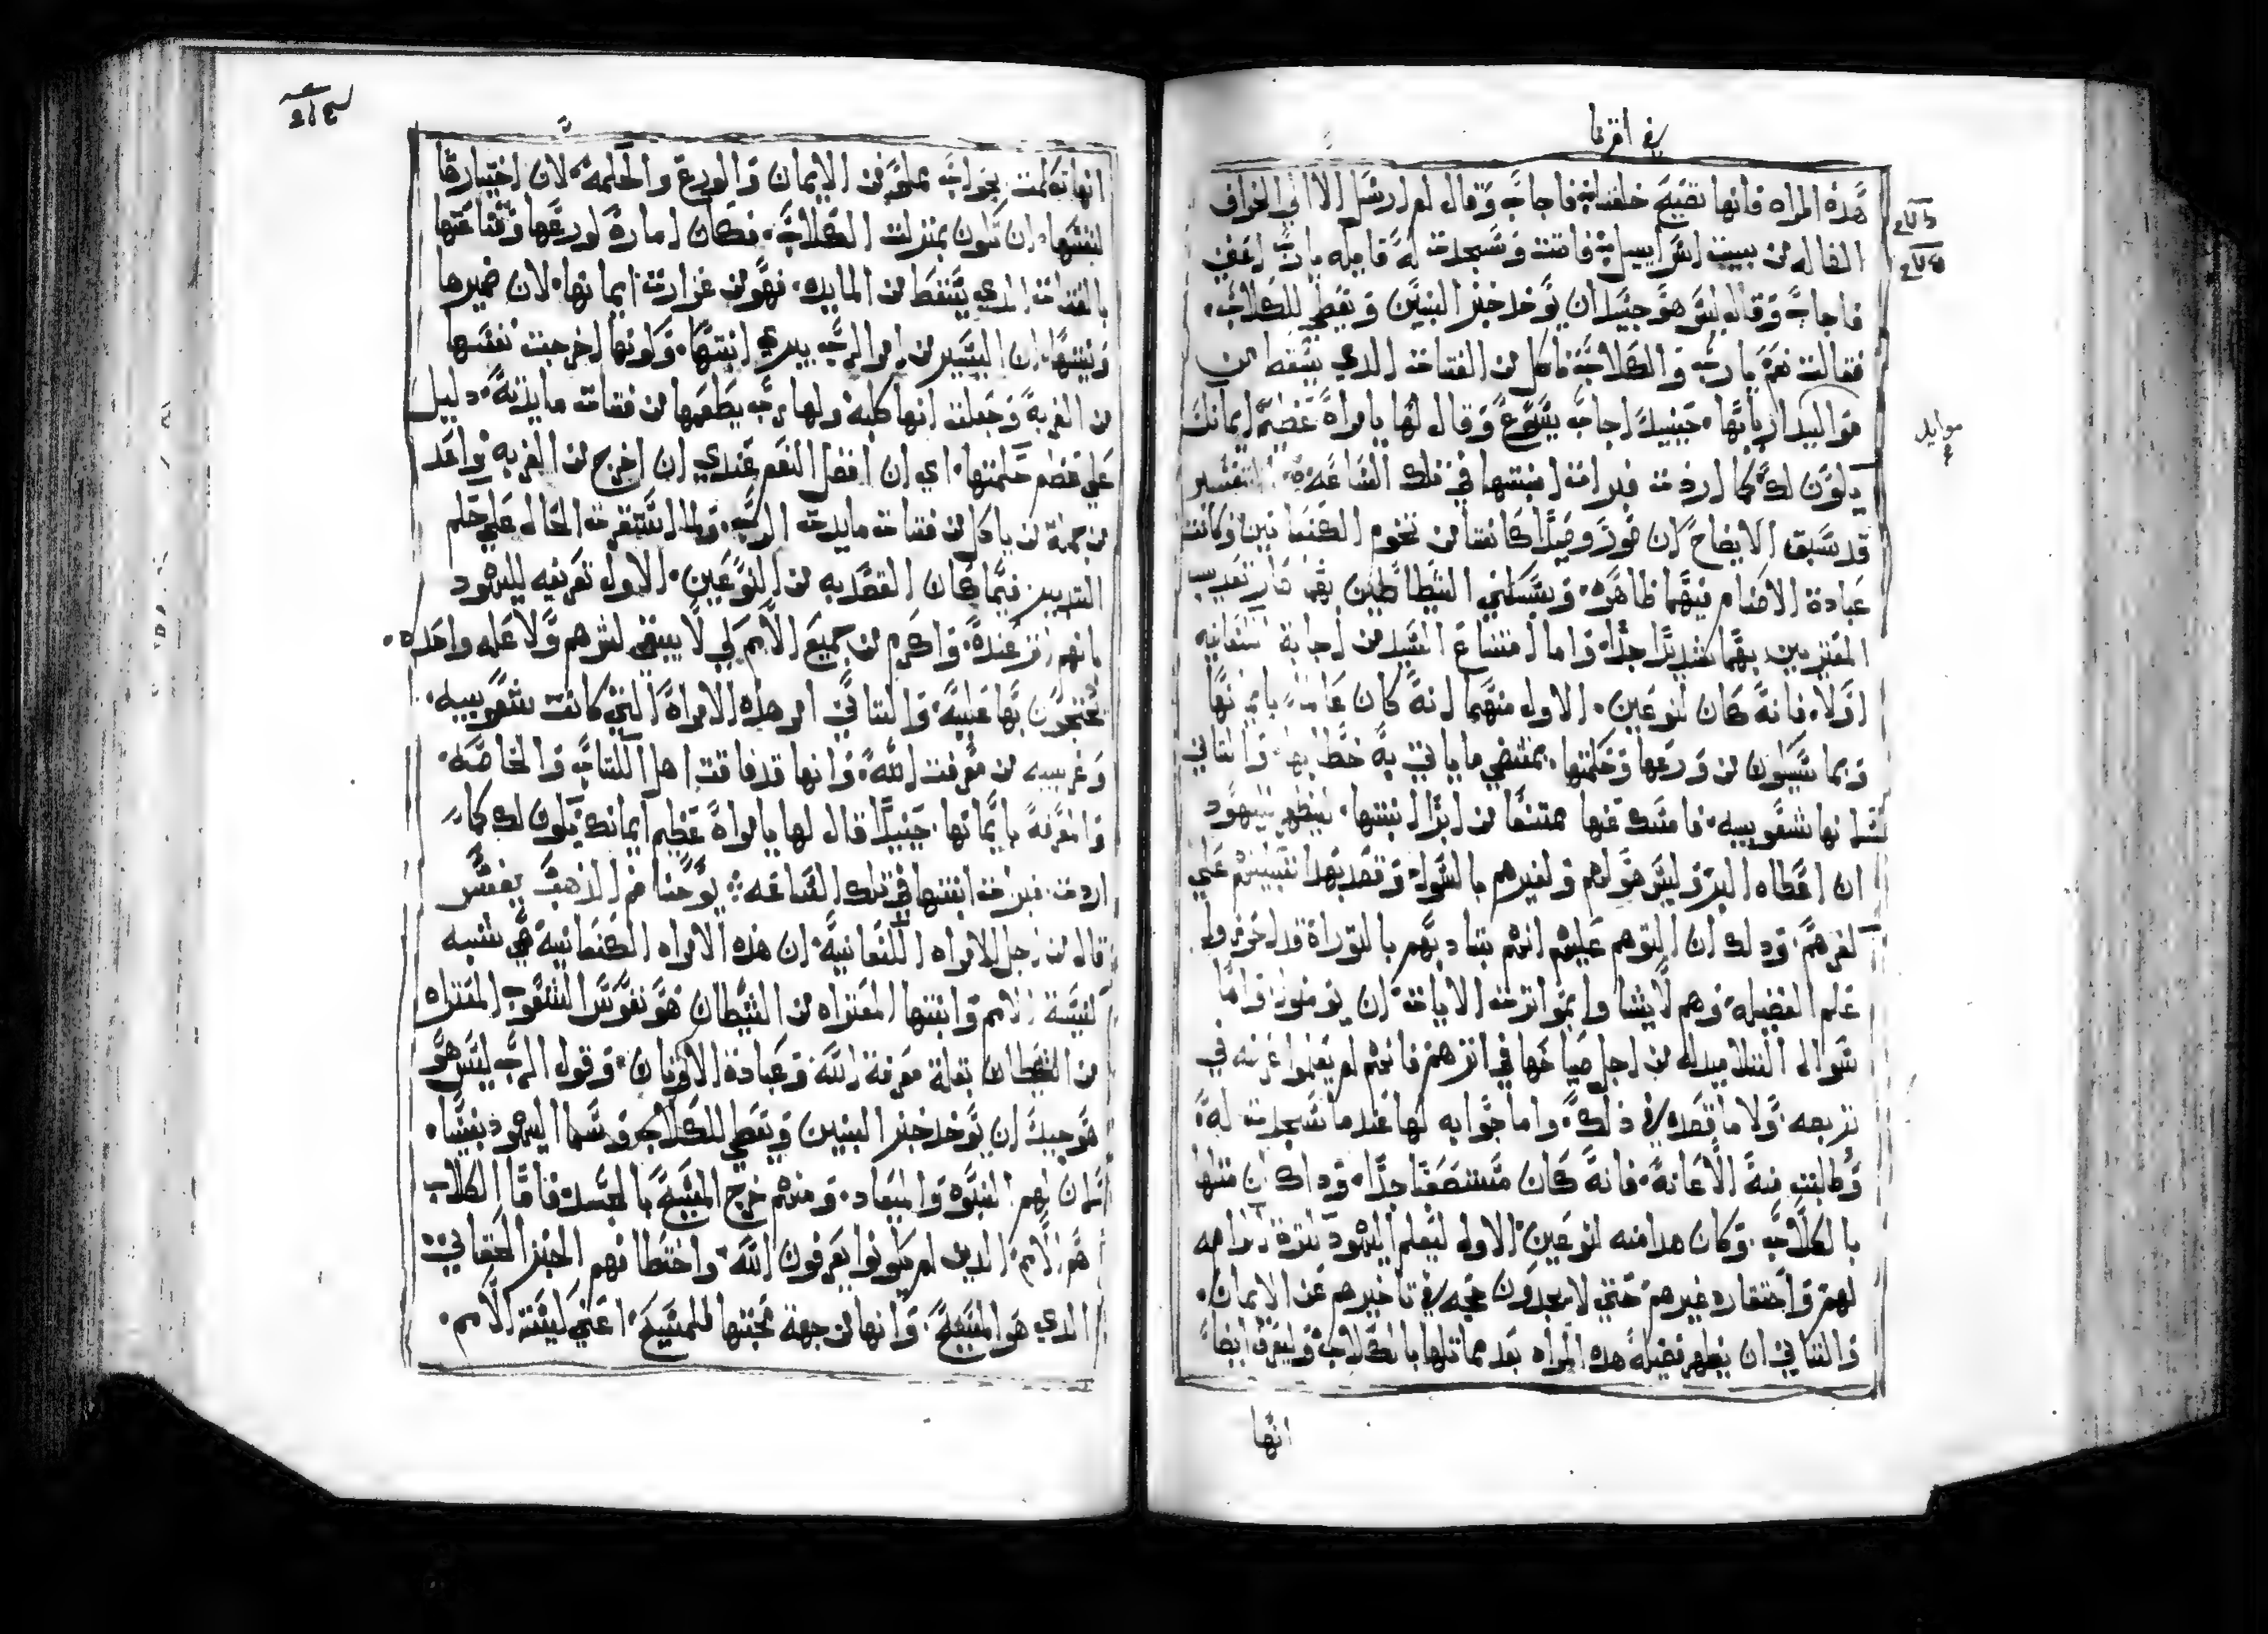 هذه المراه فانها تصيح خلفنا فاجاب وقال لم ارسل الا الي الخراف
الضاله من بيت اسراييل فاتت وسجدت له قايله يارب اعني
فاجاب وقال ليس هو جيدا ان يوخد خبز البنين ويعطي للكلاب
فقالت نعم يارب والكلاب تاكل من الفتات الدي يسقط من
موايد اربابها حينيد اجاب يسوع وقال لها يا امراة عظيم ايمانك
يكون لك كما اردت فبرات ابنتها في تلك الساعه التفسير
قد سبق الايضاح ان صور وصيدا كانتا من تخوم الكنعانيين وكانت
عبادة الاصنام فيهما ظاهره وتسلط الشياطين بهما
المعتريين بهما شديدا جدا واما امتناع السيد من اجابة
اولا فانه كان لنوعين الاول منهما انه كان عالما بايمانها
وبما سيكون من ورعها وحكمتها بمقتضي ما ياتي به خطابها والتاني
انها شعوبيه فامسك عنها ممتنعا من ابرا ابنتها ليظهر لليهود
ان اعطاه البرو ليس هو لهم ولغيرهم بالسوا وقصد بهدا تبكيتهم علي
كفرهم ودلك ان اللوم عليهم انهم بتادبهم بالتوراة قد عرفوا
علم الفضيله وهم لا يشاوا بتواتر الايات ان يومنوا واما
سوال التلاميد له من اجل صياحها في اترهم فانهم لم يعلموا غرضه في
تربصه ولا ما قصده في ذلك واما جوابه لها عندما سجدت له
وطالبت منه الاعانه فانه كان مستصعبا جدا وداك ان متلها
بالكلاب وكان هدا منه لنوعين الاول ليعلم اليهود كترة اكرامه
لهم واحتقاره غيرهم حتي لا يجدون حجه في تاخيرهم عن الايمان
والتاني ان يظهر فضيلة هده المراه بعد مماتلها بالكلاب وليعرف ايضا
انها
موايد
انها تكلمت بجواب مملو من الايمان والورع والحكمه لان اختيارها
لنفسها ان تكون بمنزلت الكلاب فكان امارة لورعها وقناعتها
بالفتات الدي يسقط من المايده فهو من غزارت ايمانها لان ضميرها
ونيتها ان اليسير من امر الرب يبري ابنتها وكونها اخرجت نفسها
من الغربة وجعلت انها كلبه ولها رب يطعمها من فتات مايدته دليل
علي عضم حكمتها اي ان افضل النعم عندي ان اخرج من الغربه واعد
من جملة من ياكل من فتات مايدت الرب ولما استقرت الحال علي حكم
التدبير فيما كان القصد به من النوعين الاول تعريفه لليهود
بانهم اتر عنده واكرم من جميع الامم لكي لا يبقي لشرهم ولا عله واحده
يحتجون بها عليه والتاني امر هذه الامراة التي كانت شعوبيه
وغريبه من معرفت الله وانها قد فاقت اهل الكتاب والخاصه
والمعرفة بايمانها حينيد قال لها يا امراة عظيم ايمانك يكون لك كما
اردت فبرات ابنتها في تلك الساعه يوحنا فم الذهب يفسر
قال من اجل الامراه الكنعانية ان هذه الامراه الكنعانية هي شبيه
لبيعة الامم وابنتها المعتراه من الشيطان هو نفوس الشعوب المعتراه
من الشيطان بقلة معرفة الله وعبادة الاوتان وقول الرب ليس هو
هو جيد ان يوخد خبز البنين ويعطي للكلاب وسما اليهود بنينا
لان لهم النبوه والميعاد ومنهم خرج المسيح بالجسد فاما الكلاب
هم الامم الدين لم يكونوا يعرفون الله واختطافهم الخبز الحقاني
الدي هو المسيح وانها من جهة محبتها للمسيح اعني بيعة الامم